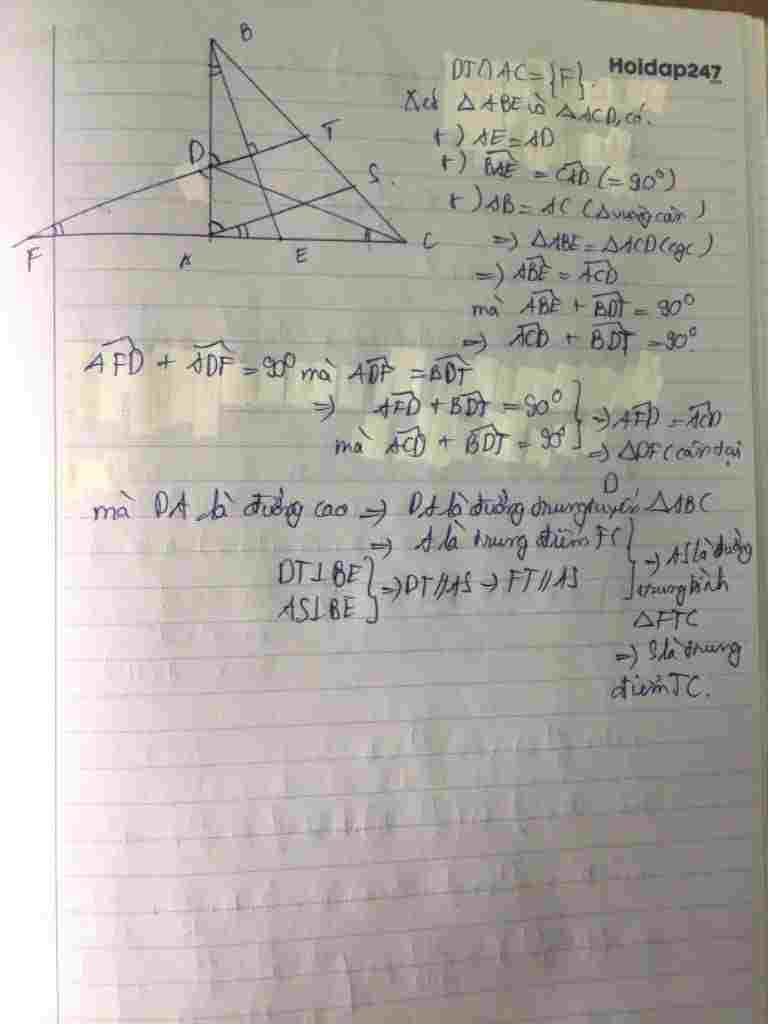 B
D
T
S
F
A
E
C
Hoidap247
DT∩AC = {F}.
Xét △ABE và △ACD, có.
+) AE = AD
+) \widehat{BAE} = \widehat{CAD} (= 90°)
+) AB = AC (△vuông cân)
=> △ABE = △ACD (cgc)
=> \widehat{ABE} = \widehat{ACD}
mà \widehat{ABE} + \widehat{BDT} = 90°
=> \widehat{ACD} + \widehat{BDT} = 90°.
\widehat{AFD} + \widehat{ADF} = 90° mà \widehat{ADF} = \widehat{BDT}
=> \widehat{AFD} + \widehat{BDT} = 90°
mà \widehat{ACD} + \widehat{BDT} = 90°
=> \widehat{AFD} = \widehat{ACD}
=> △DF(cân tại
D
mà DA là đường cao => DA là đường trung tuyến △ABC
=> A là trung điểm FC
DT⊥BE
AS⊥BE
=> DT//AS -> FT//AS
=> AS là đường
trung bình
△FTC
=> S là trung
điểm TC.